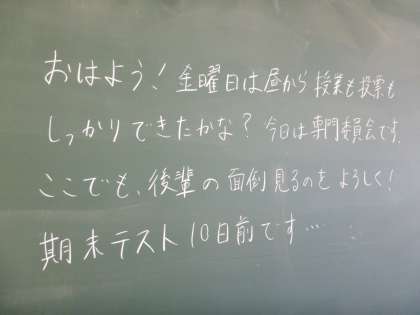 おはよう！金曜日は昼から授業も投票も
しっかりできたかな？今日は専門委員会です。
ここでも、後輩の面倒見るのをよろしく！
期末テスト10日前です…